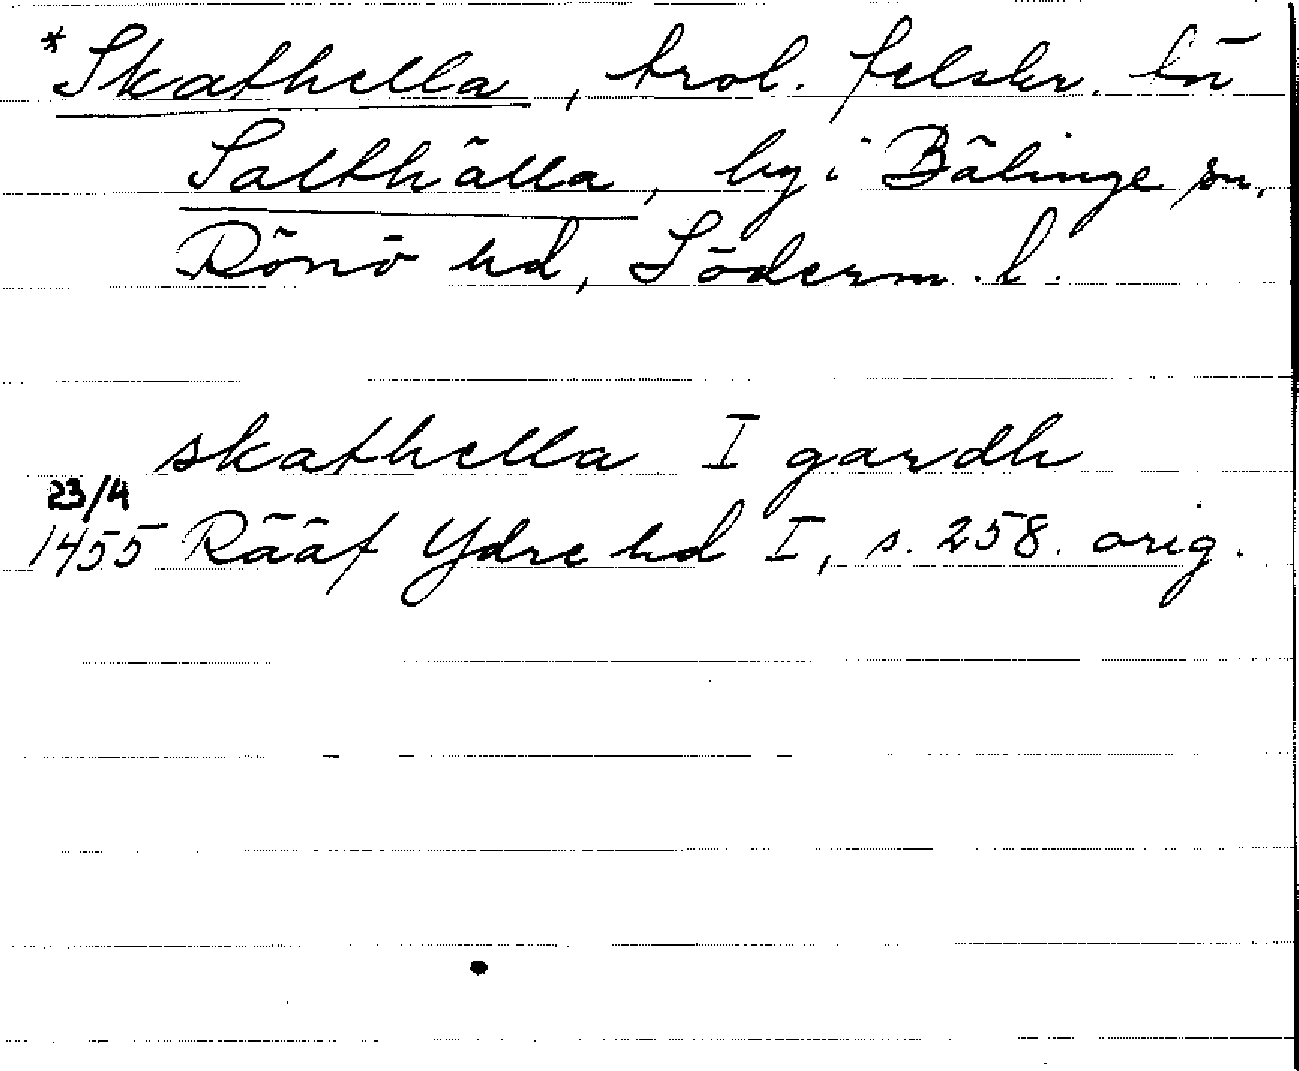 *Skathella, trol. felskr. för
Salthälla, by i Bälinge sn,
Rönö hd, Söderm. l.
skathella I gardh
23/4
1455 Rääf Ydre hd I, s. 258. orig.